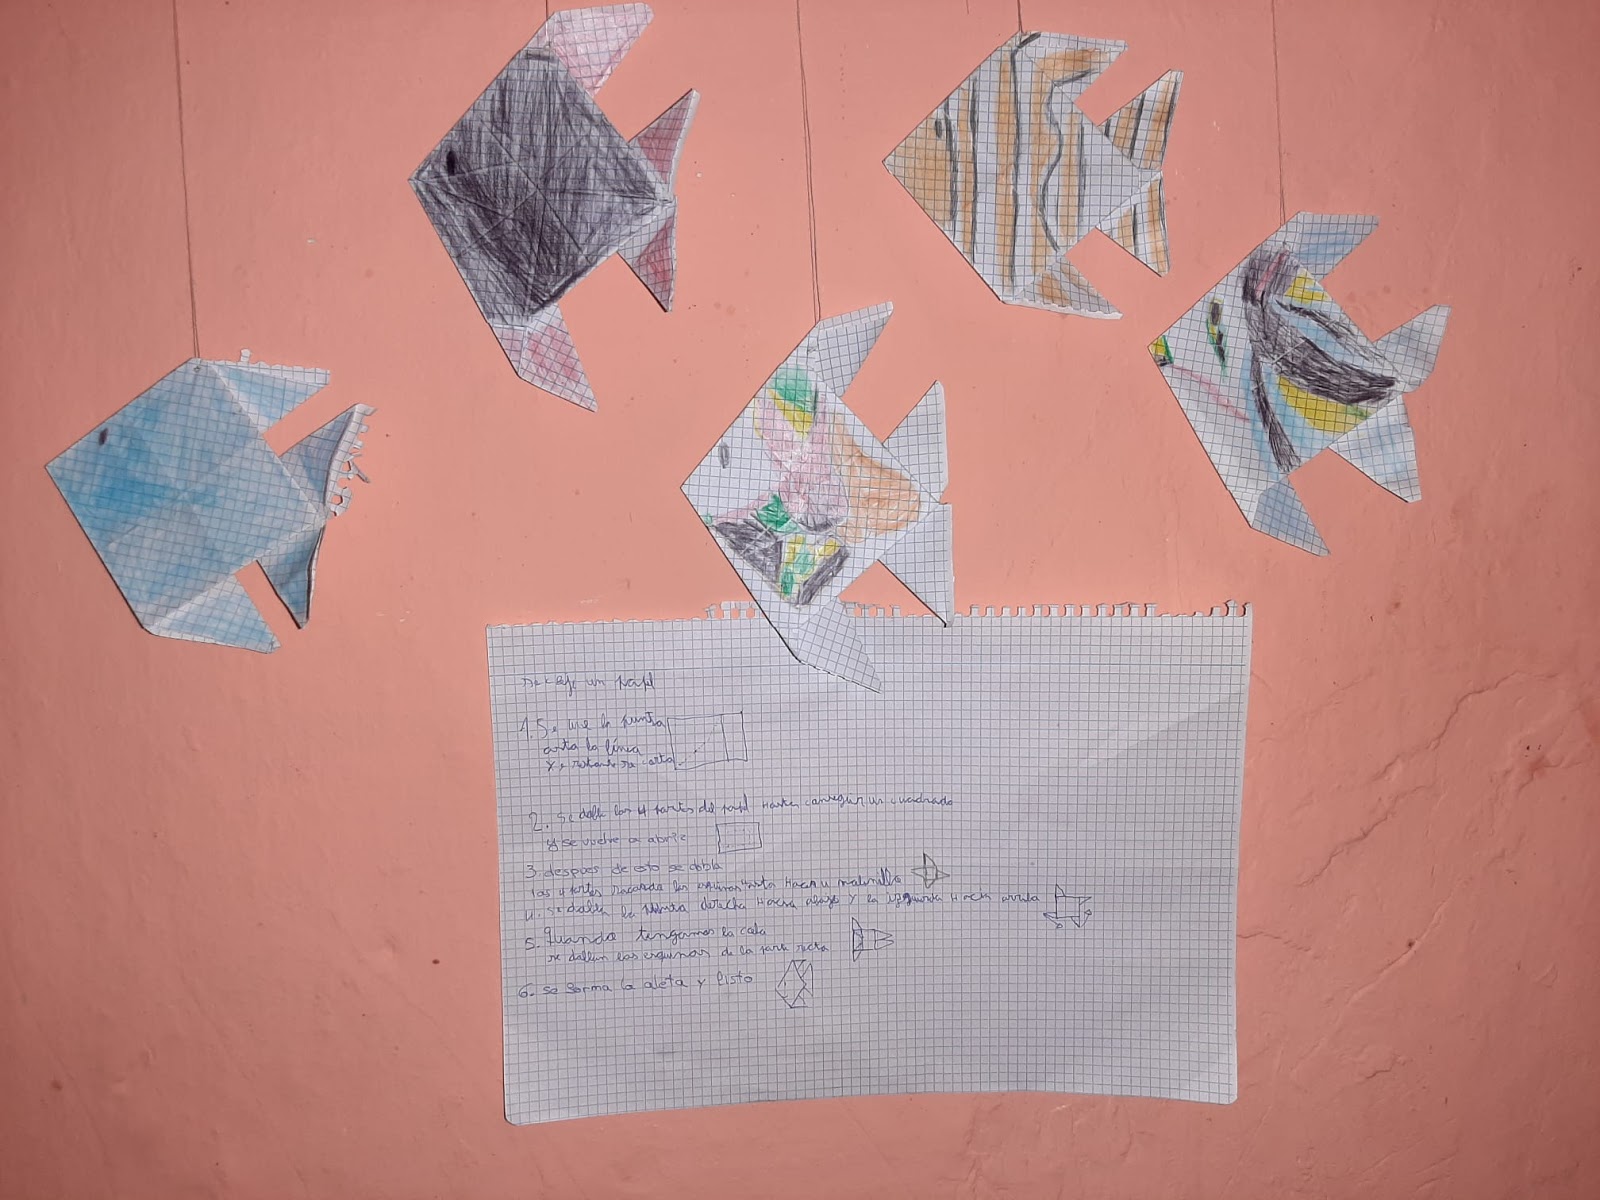 se coje un papel
1. Se une la punta
asta la línea
y,
2. se dobla las 4 partes del papel Hasta conseguir un cuadrado
y se vuelve a abrir
3. despues de esto se dobla
las 4 partes las esquinas asta Hacer un molinillo
4. se dobla la punta derecha Hacia abajo y la izquierda Hacia arriba
5. Quando tengamos la cola
se doblan las esquinas de la parte recta
6. se forma la aleta y listo